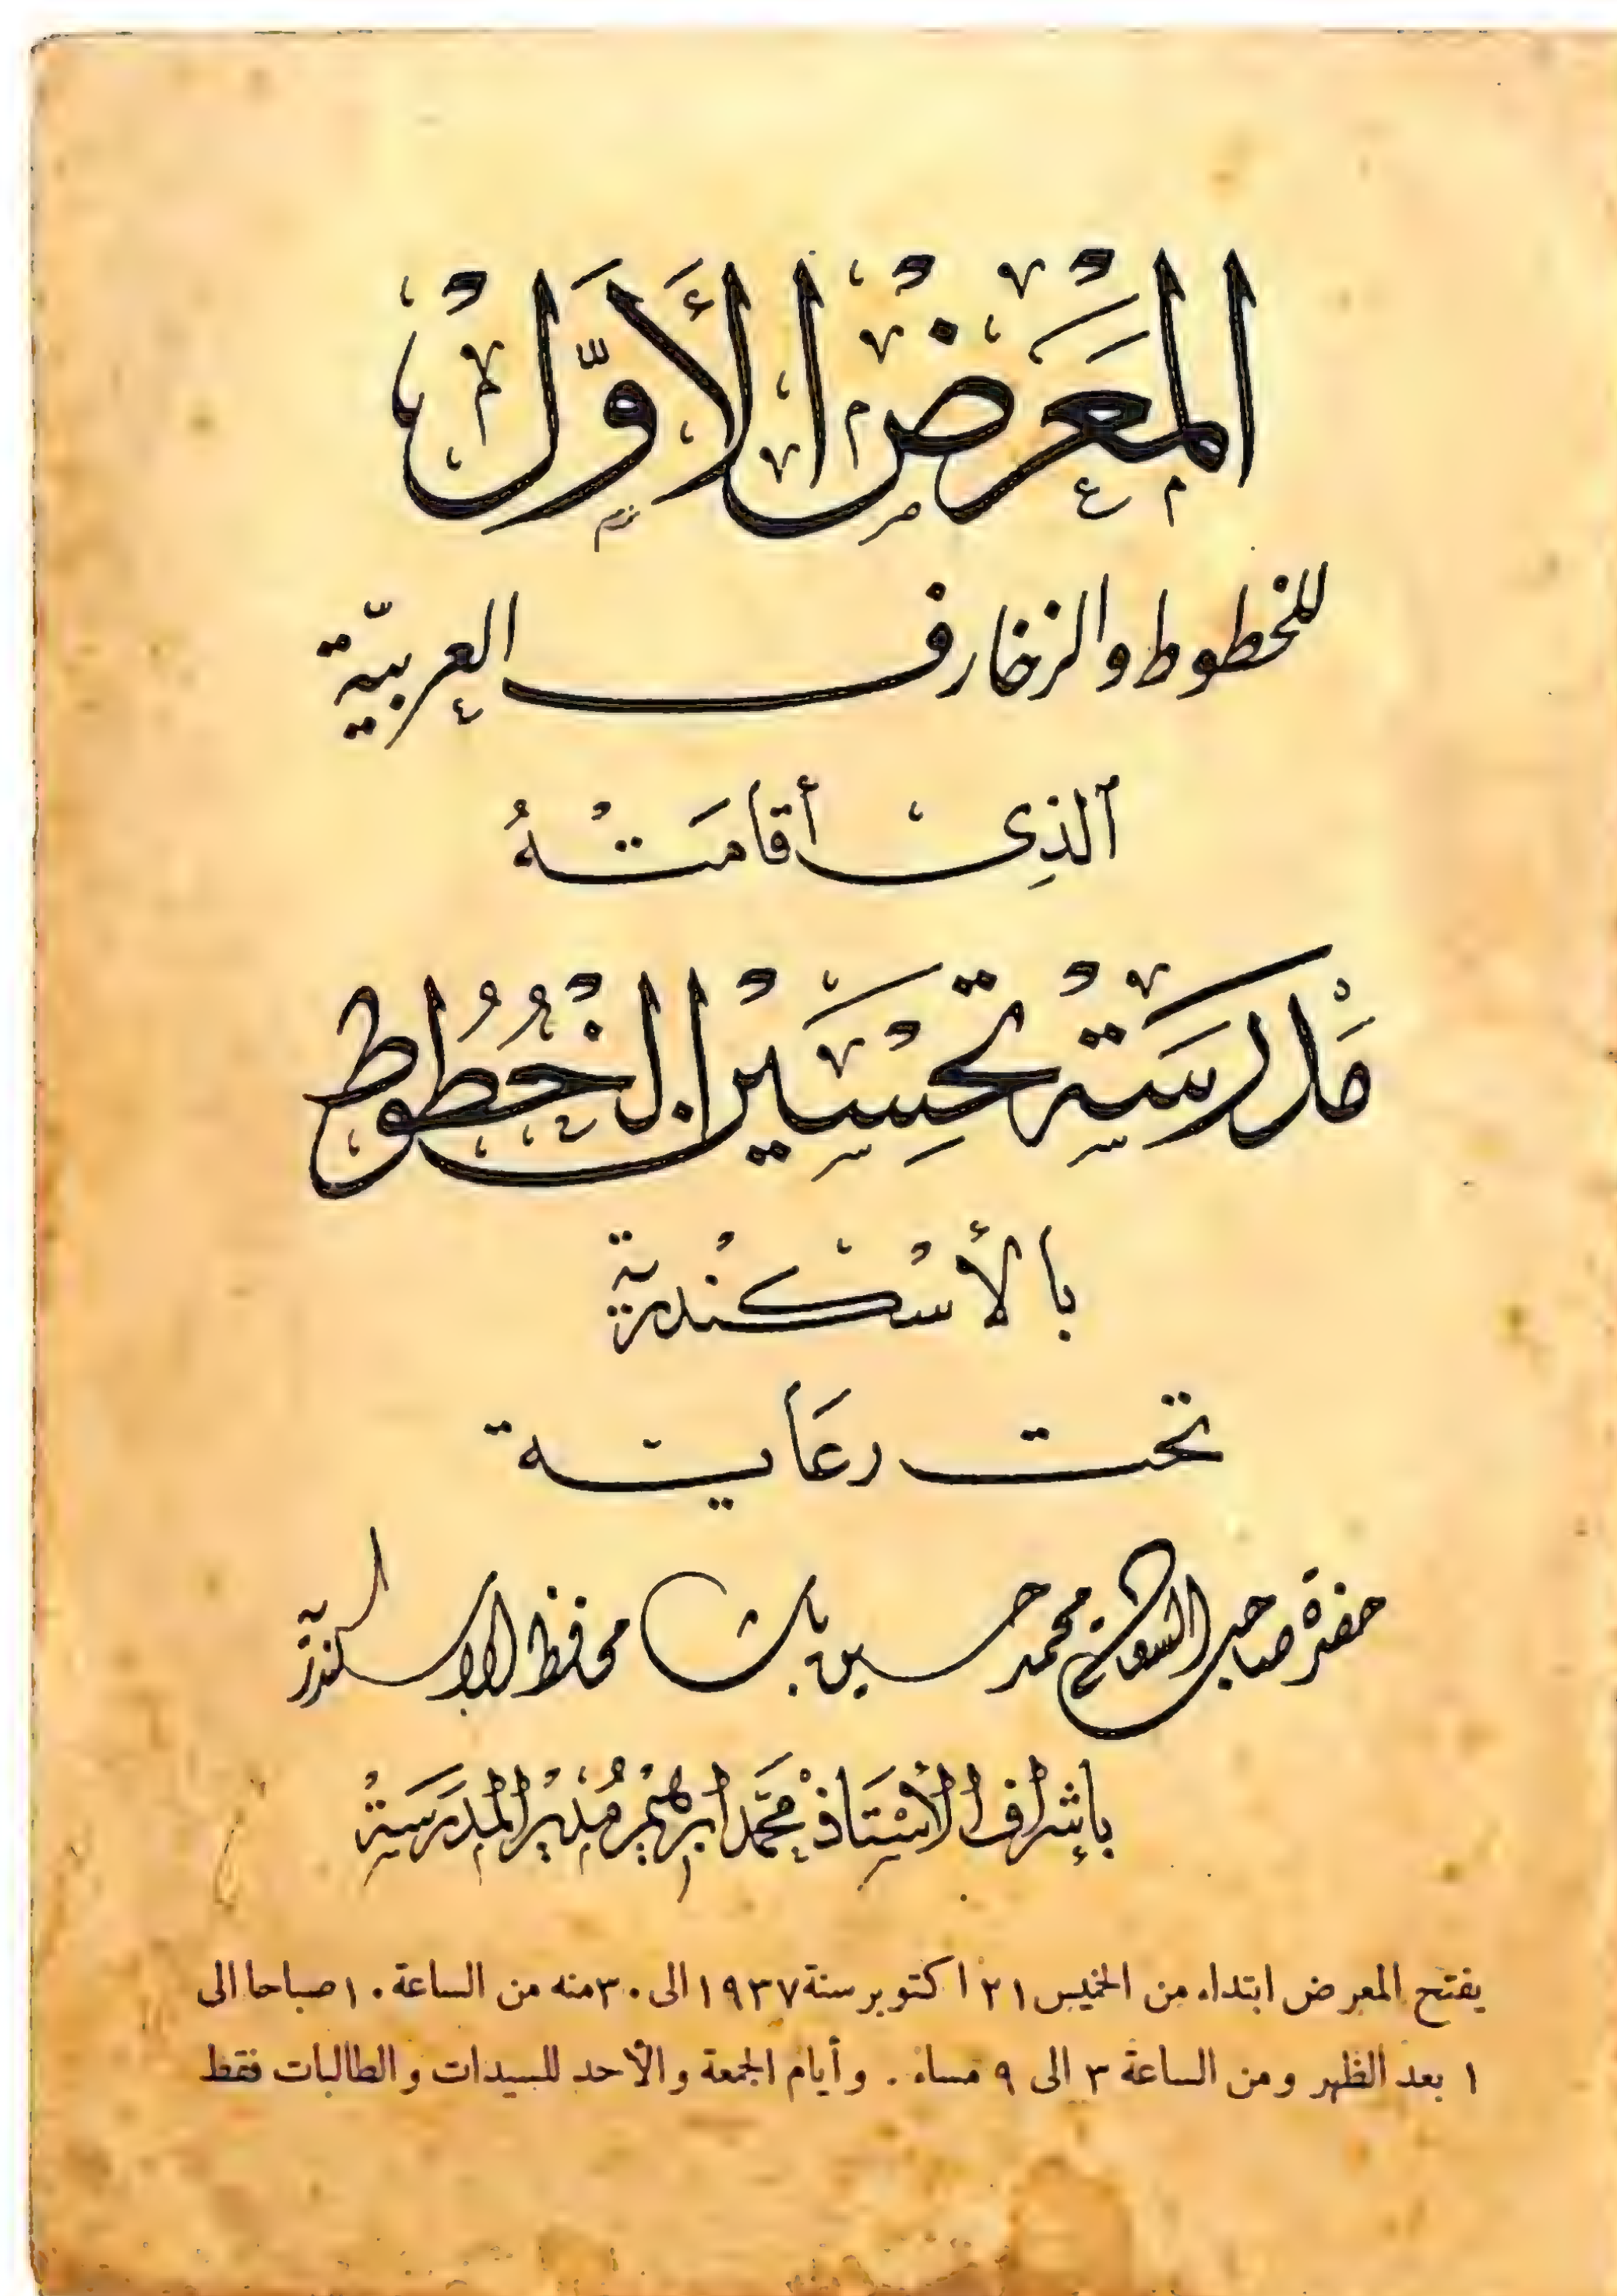 المَعْرَضُ الأَوَّلُ
للخطوط والزخارف العربيّة
ٱلذِى أقامَتْهُ
مَدْرَسَة تحْسِين الخُطُوط
بالأسْكنْدرية
تحت رعَاية
حضرة صاحب السعادة محمد حسين باشا محافظ الاسكندرية
بإشراف الأسْتَاذ محَمَّد ابرهيم مُدير المدرَسَة
يفتح المعرض ابتداء من الخميس ٢١ اكتوبر سنة ١٩٣٧ الى ٣٠ منه من الساعة ١٠ صباحا الى
١ بعد الظهر ومن الساعة ٣ الى ٩ مساء . وأيام الجمعة والأحد للسيدات والطالبات فقط